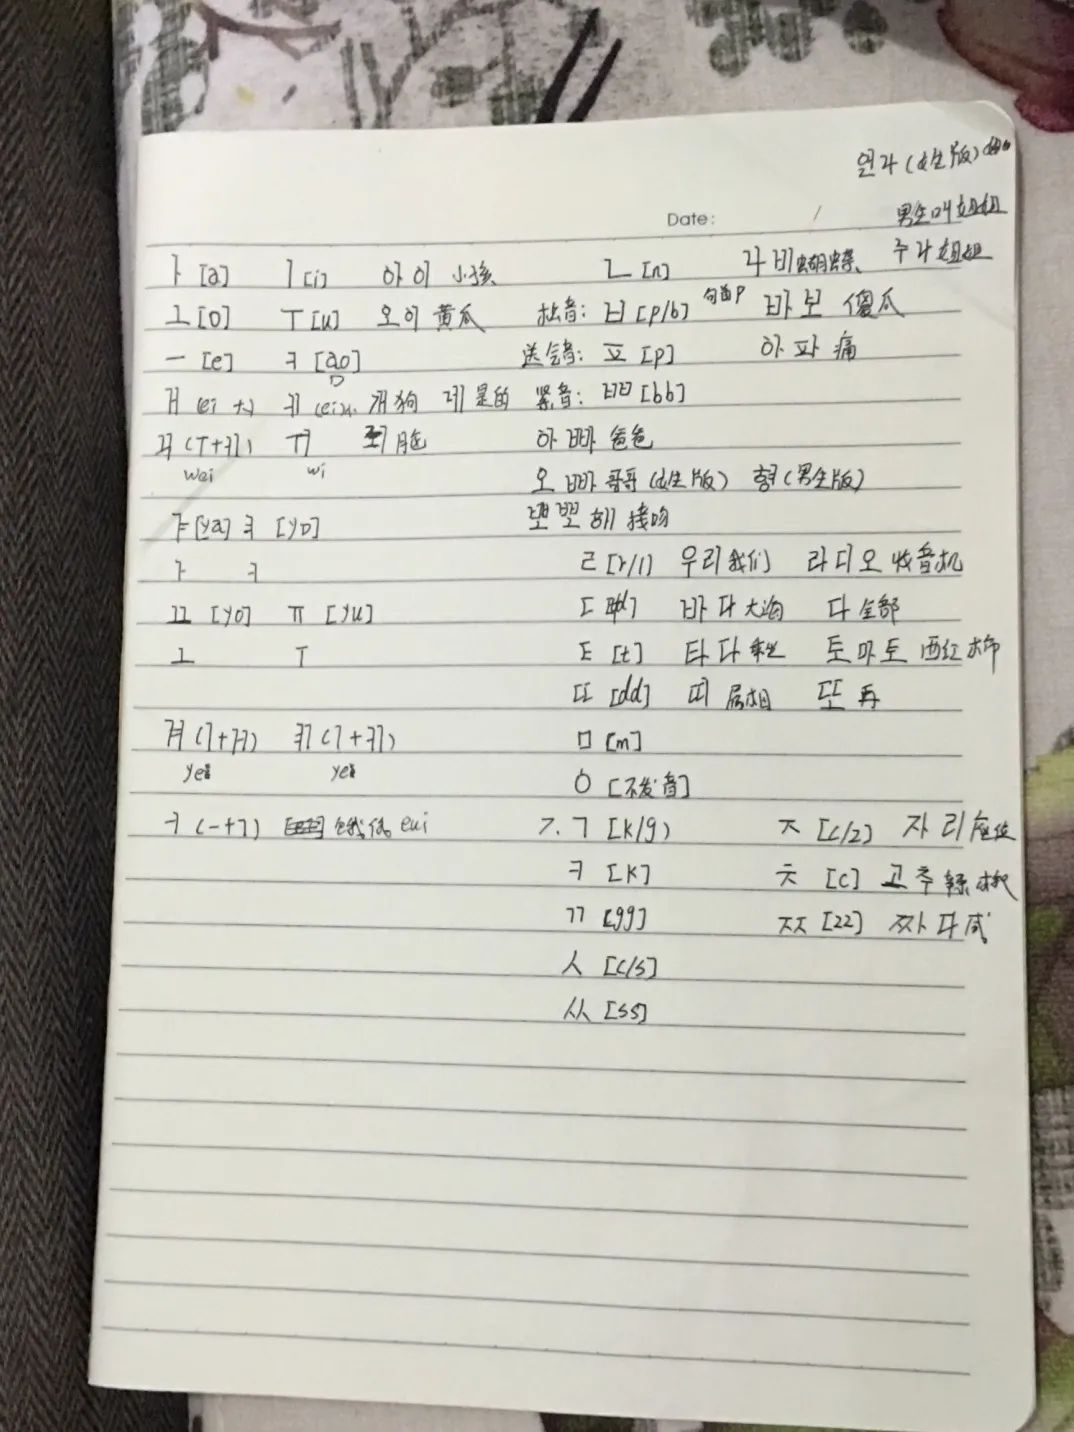 언니 (女生版)
男生叫姐姐
Date:
누나 姐姐
ㅏ [a] ㅣ [i] 아이 小孩 ㄴ [n] 나비 蝴蝶
ㅗ [o] ㅜ [u] 오이 黄瓜 拙音: ㅂ [p/b] 句首p 바보 傻瓜
ㅡ [e] ㅓ [ao] 送气音: ㅍ [p] 아파 痛
ㅐ (ei 大) ㅔ (ei小) 개 狗 네 是的 紧音: ㅃ [bb]
ㅞ (ㅜ+ㅔ) ㅟ 뇌 脑 아빠 爸爸
wei wi
오빠 哥哥 (女生版) 형 (男生版)
ㅑ [ya] ㅕ [yo] 뽀뽀해 接吻
ㅏ ㅓ ㄹ [r/l] 우리 我们 라디오 收音机
ㅛ [yo] ㅠ [yu] ㄷ 바다 大海 다 全部
ㅗ ㅜ ㅌ [t] 타다 乘 토마토 西红柿
ㄸ [dd] 띠 属相 또 再
ㅒ (ㅣ+ㅐ) ㅖ (ㅣ+ㅔ) ㅁ [m]
ye ye
ㅇ [不发音]
ㅢ (ㅡ+ㅣ) eui ㄱ. ㄱ [k/g) ㅈ [c/z] 자리 座位
ㅋ [k] ㅊ [c] 고추 辣椒
ㄲ [gg] ㅉ [zz] 짜다 咸
ㅅ [c/s]
ㅆ [ss]